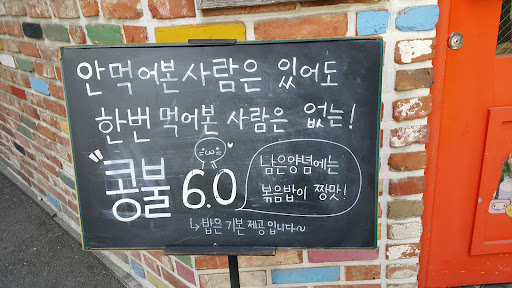 안 먹어본 사람은 있어도
한번 먹어본 사람은 없는!
"콩불 6.0
남은양념에는
볶음밥이 짱맛!
↳ 밥은 기본 제공 입니다~